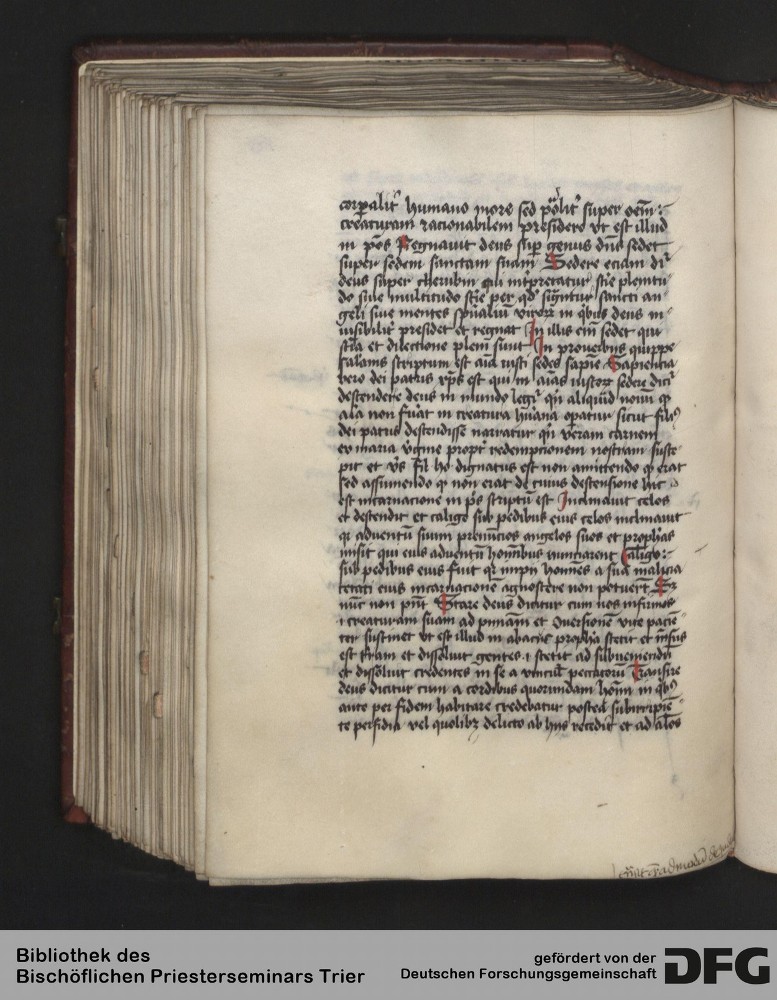 corꝑalit᷑ humano more sed po̾lit᷑ super oēm
creaturam racionabilem presidere vt est illud
in ps̄ Regnauit deus suꝑ gentes dn̄s sedet
super sedem sanctam suam Sedere eciam di᷑
deus super cherubin qui int͛pretatur sc̄ie plenitu
do siue multitudo sc̄ie per qd̄ sig̅ntur sancti an
geli siue mentes spūaliū viroꝝ in qͥbus deus in
uisibilit᷑ presidet et regnat In illis em̄ sedet qui
sc̄ia et dilectione pleni sunt In prouerbiis quippe
salam̄s scriptum est aīa iusti sedes sapīe Sapiencia
vero dei patris xp̄s est qui in aīas iustoꝝ sedere dici᷑
descendere deus in mundo legi᷑ qn̄ aliquid noui qͣ
an̄a non fuat in creatura hūana oꝑatur sicut filiꝰ
dei patris descendisse narratur qn̄ veram carnem
ex maria v̾gine propt᷑ redempcionem nostram susce
pit et v̾s fil̄ ho dignatus est non amittendo qͣ erat
sed assumendo qͣ non erat de cuius descensione hic
est incarnacione in ps̄ scriptū est Inclinauit celos
et descendit et caligo sub pedibus eius celos inclinauit
qͥ aduentū suum prenūcios angelos suos et proph̄as
misit qui eius aduentū hoībus nunciarent Caligo
sub pedibus eius fuit qͥ impii hoīnes a sua malicia
cecati eius incarnacionē agnoscere non potuer̄t Et
nūc non pn̄t Stare deus dicitur cum nos infirmos
.i. creaturam suam ad pn̄iam et ꝯuersionē vite paciē
ter sustinet vt est illud in abacuc proph̄a stetit et mēsus
est t̄ram et dissoluit gentes .i. stetit ad subueniendū
et dissoluit credentes in se a vincul̄ peccatorū Transire
deus dicitur cum a cordibus quorundam hoīm in qͥbꝰ
ante per fidem habitare credebatur postea subintripiē
te perfidia vel quolibꝫ delicto ab hiis recedit et ad alios
Bibliothek des
Bischöflichen Priesterseminars Trier
gefördert von der
Deutschen Forschungsgemeinschaft
DFG